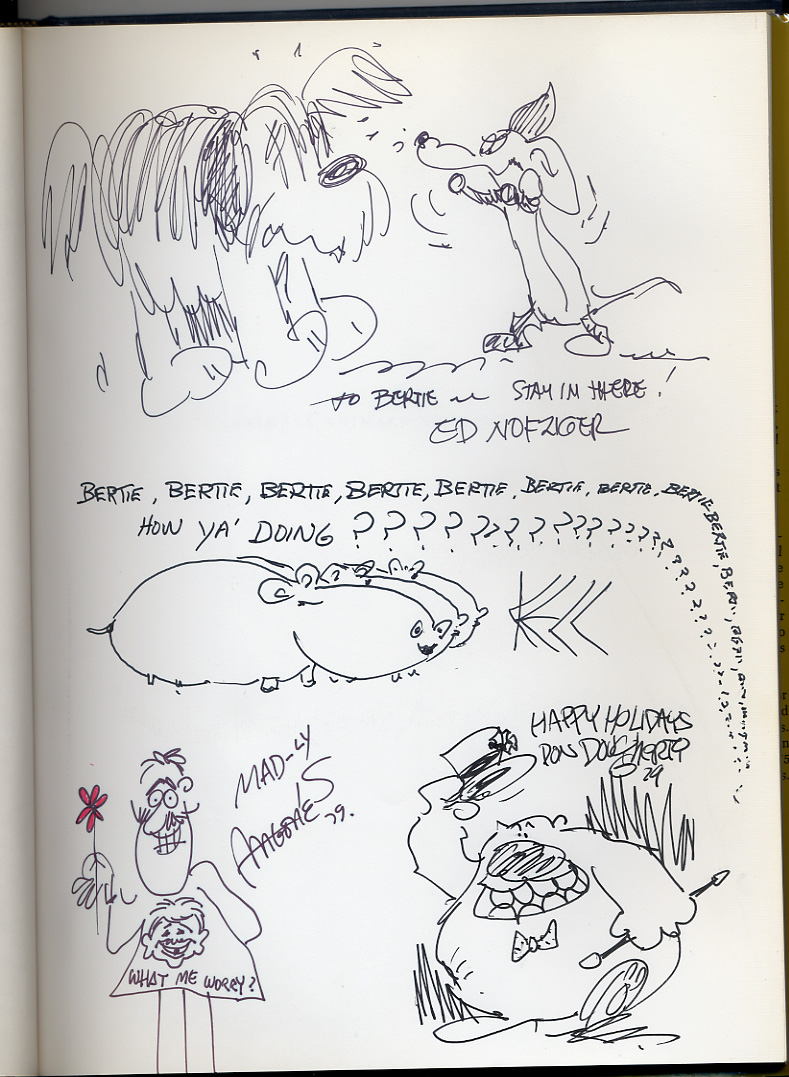 TO BERTIE — STAY IN THERE!
ED NOFZIGER
BERTIE, BERTIE, BERTIE, BERTIE, BERTIE, BERTIE, BERTIE, BERTIE, BERTIE, BERTIE, BERTIE,
HOW YA' DOING ? ? ? ? ? ? ? ? ? ? ? ? ? ? ? ? ? ? ? ? ? ? ? ? ? ? ?
HAPPY HOLIDAYS
DON DOUGHERTY
79
MAD-LY
ARAGONÉS
79.
WHAT ME WORRY?